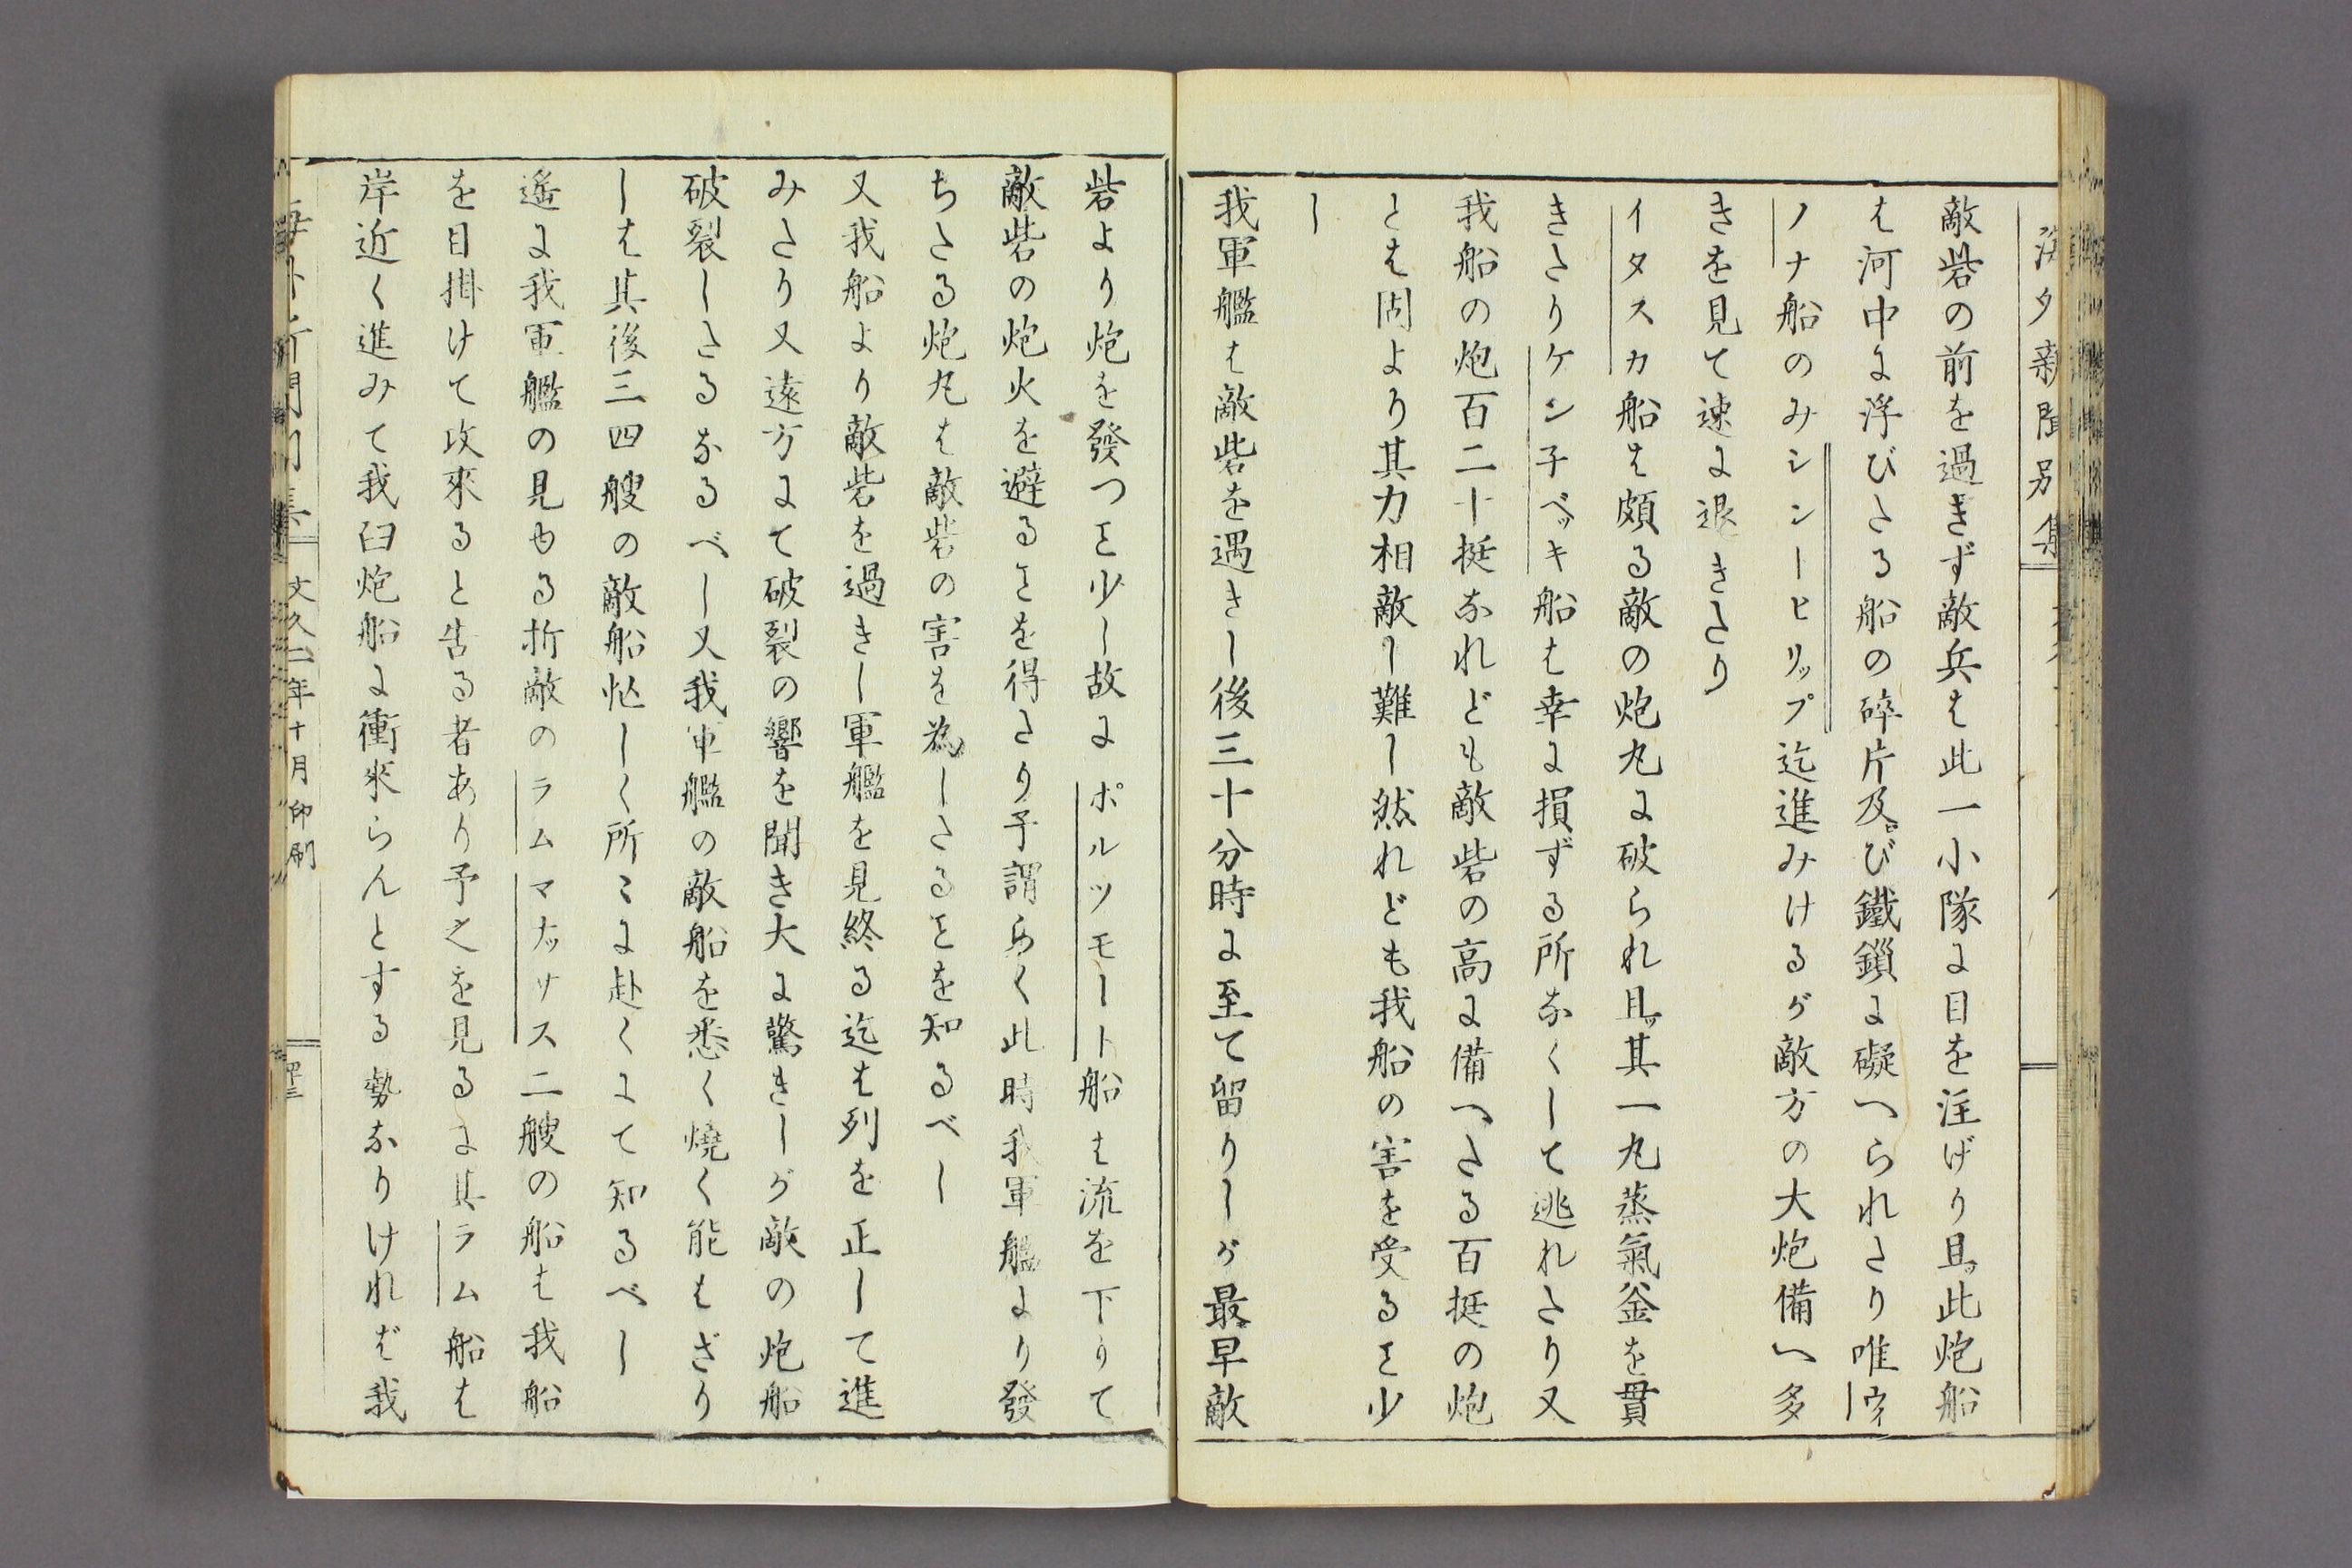 海外新聞別集
敵砦の前を過ぎず敵兵は此一小隊に目を注げり且ッ此炮船
は河中に浮びたる船の碎片及ヒび鐵鎖に礙へられたり唯ウイ
ノナ船のみシンーヒリップ迄進みけるが敵方の大炮備へ多
きを見て速に退きたり
イタスカ船は頗る敵の炮丸に破られ且ッ其一丸蒸氣釜を貫
きたりケン子ベッキ船は幸に損ずる所なくして逃れたり又
我船の炮百二十挺なれども敵砦の高に備へたる百挺の炮
とは固より其力相敵し難し然れども我船の害を受るヿ少
し
我軍艦は敵砦を過きし後三十分時に至て留りしが最早敵
砦より炮を發つヿ少し故にポルツモート船は流を下りて
敵砦の炮火を避るヿを得たり予謂らく此時我軍艦より發
ちたる炮丸は敵砦の害を為したるヿを知るべし
又我船より敵砦を過きし軍艦を見終る迄は列を正して進
みたり又遠方にて破裂の響を聞き大に驚きしが敵の炮船
破裂したるなるべし又我軍艦の敵船を悉く燒く能はざり
しは其後三四艘の敵船忙しく所々に赴くにて知るべし
遙に我軍艦の見ゆる折敵のラムマナッサス二艘の船は我船
を目掛けて攻來ると告る者あり予之を見るに其ラム船は
岸近く進みて我臼炮船に衝來らんとする勢なりければ我
文久二年十月印刷